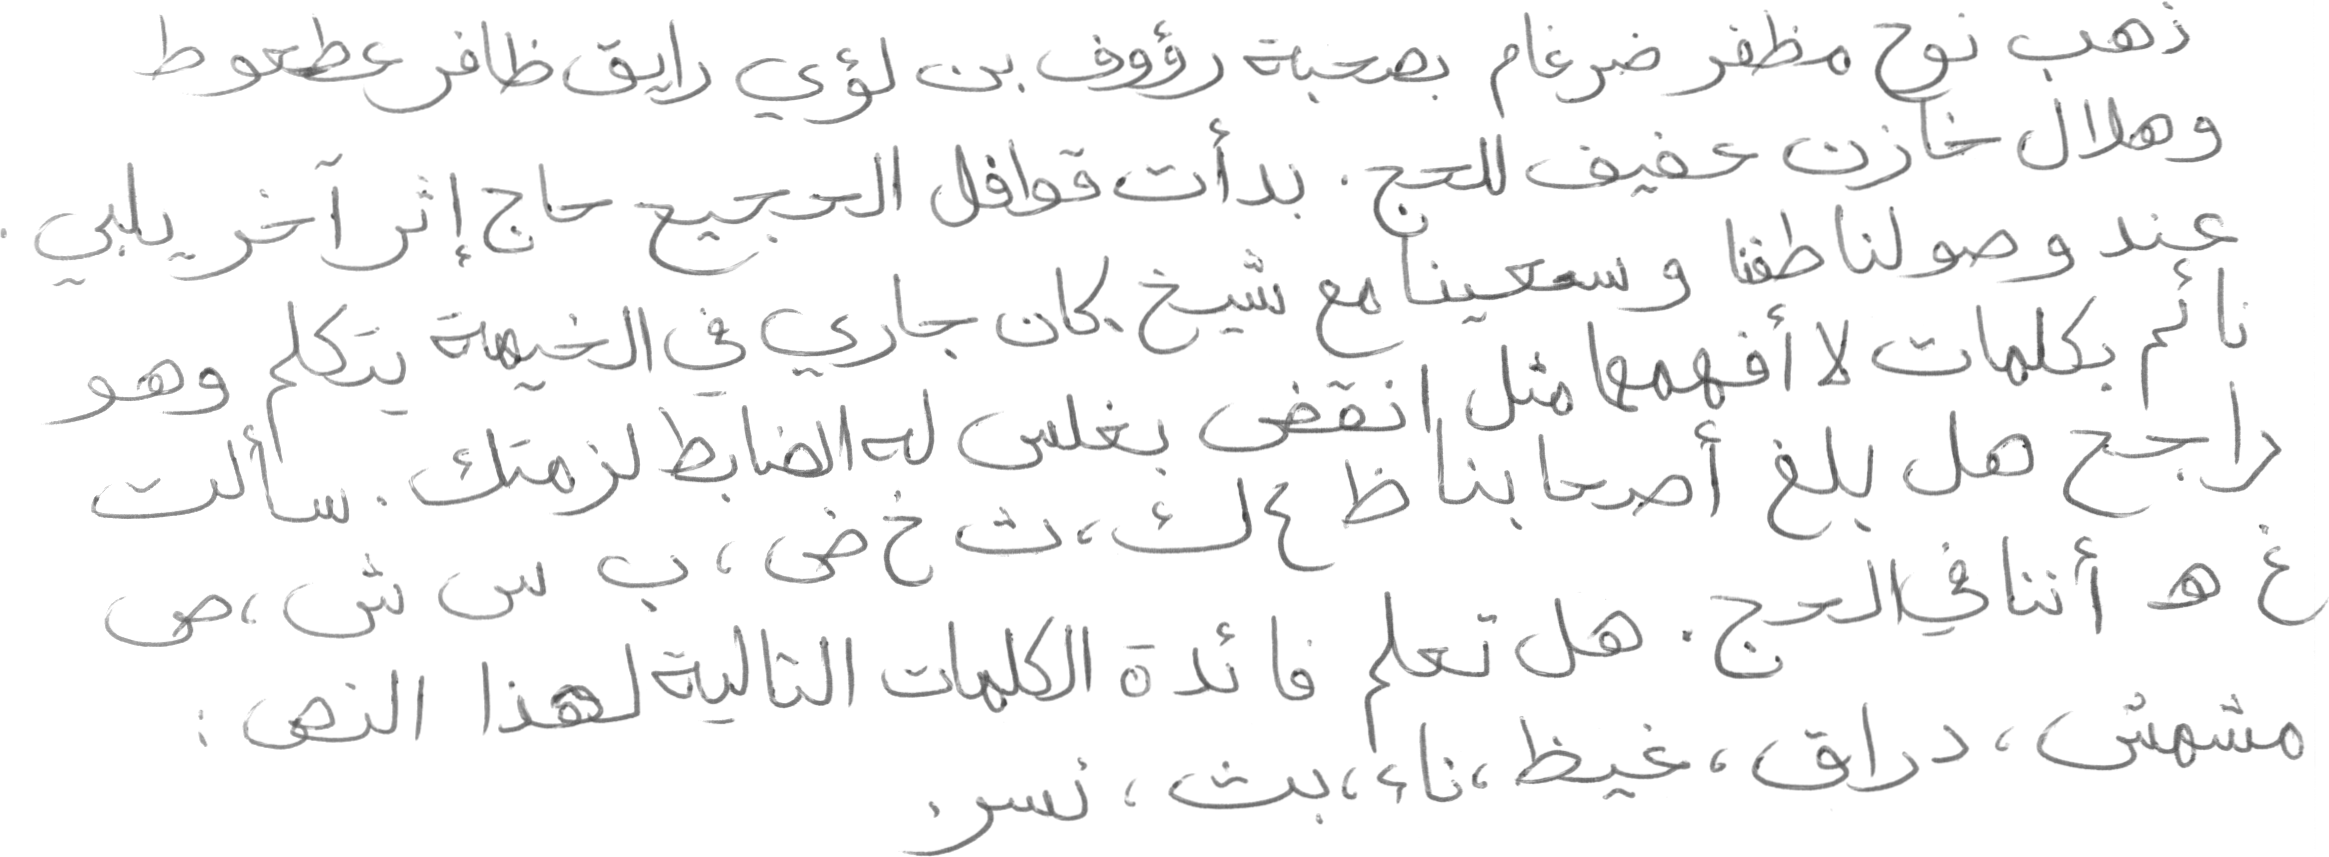 ذهب نوح مظفر ضرغام بصحبة رؤوف بن لؤي رايق ظافر عطعوط
وهلال خازن عفيف للحج. بدأت قوافل الحجيج حاج إثر آخر يلبي.
عند وصولنا طفنا وسعينا مع شيخ كان جاري في الخيمة يتكلم وهو
نائم بكلمات لا أفهمها مثل انقض بغلس له الضابط لزمتك. سألت
راجح هل بلغ أصحابنا ظ ع ك، ث خ ض، ب س ش، ص
غ ه أننا في الحج. هل تعلم فائدة الكلمات التالية لهذا النص:
مشمش، دراق، غيظ، ناء، بث، نسر.